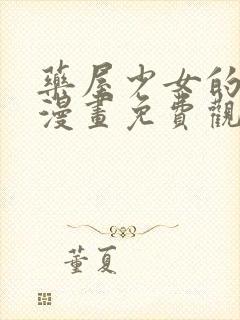 藥屋少女的
漫畫免費觀
董夏